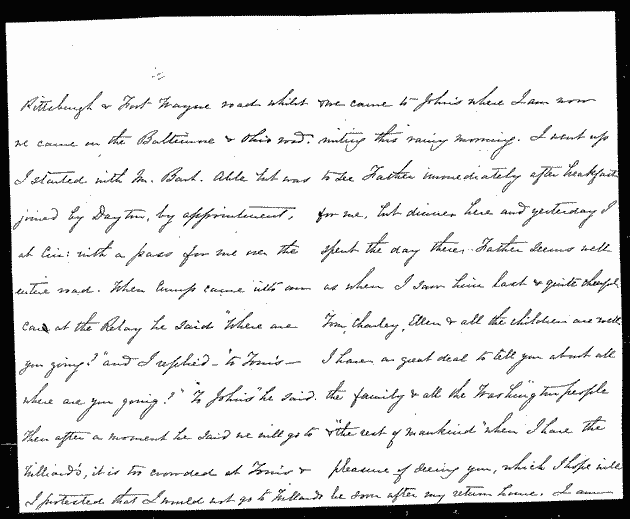 Pittsburgh & Fort Wayne road whilst
we came on the Baltimore & Ohio road.
I started with Mr. Bart. Able but was
joined by Dayton, by appointment,
at Cin: with a pass for me over the
entire road. When Cump came into our
car at the Relay he said "Where are
you going?" and I replied - "to Tom's -
where are you going?" "To John's" he said.
Then after a moment he said we will go to
Willard's, it is too crowded at Tom's &
I protested that I would not go to Willards
& we came to John's where I am now
writing this rainy morning. I went up
to see Father immediately after breakfast
for me, but dinner here and yesterday I
spent the day there. Father seems well
as when I saw him last & quite cheerful
Tom, Charley, Ellen & all the children are well.
I have a great deal to tell you about all
the family & all the Washington people
& "the rest of mankind" when I have the
pleasure of seeing you, which I hope will
be soon after my return home. I am